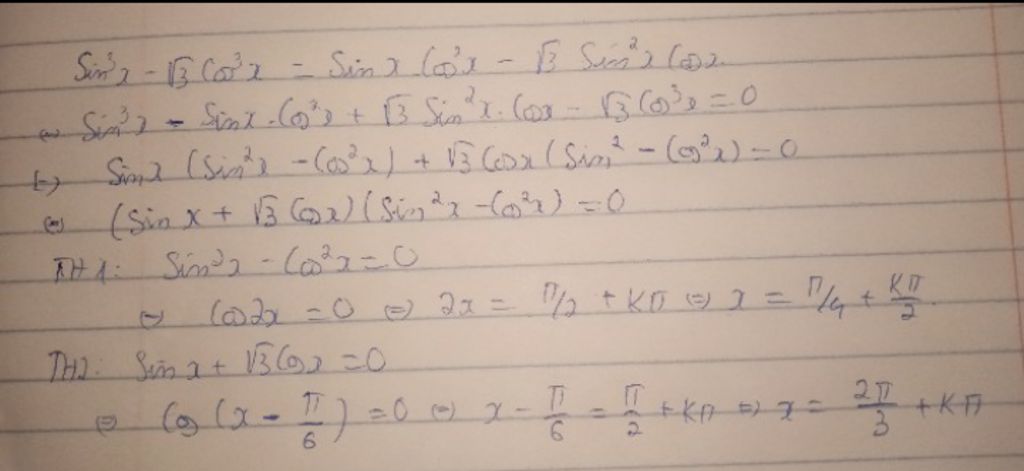 Sin³x - √3 Cos³x = Sin x . Cos²x - √3 Sin²x Cosx
⇔ Sin³x - Sinx . Cos²x + √3 Sin²x . Cosx - √3 Cos³x = 0
⇔ Sinx (Sin²x - Cos²x) + √3 Cosx (Sin² - Cos²x) = 0
⇔ (Sin x + √3 Cosx) (Sin²x - Cos²x) = 0
TH1: Sin²x - Cos²x = 0
⇔ Cos2x = 0 ⇔ 2x = π/2 + Kπ ⇔ x = π/4 + Kπ/2.
TH2: Sin x + √3 Cosx = 0
⇔ Cos (x - π/6) = 0 ⇔ x - π/6 = π/2 + Kπ ⇔ x = 2π/3 + Kπ